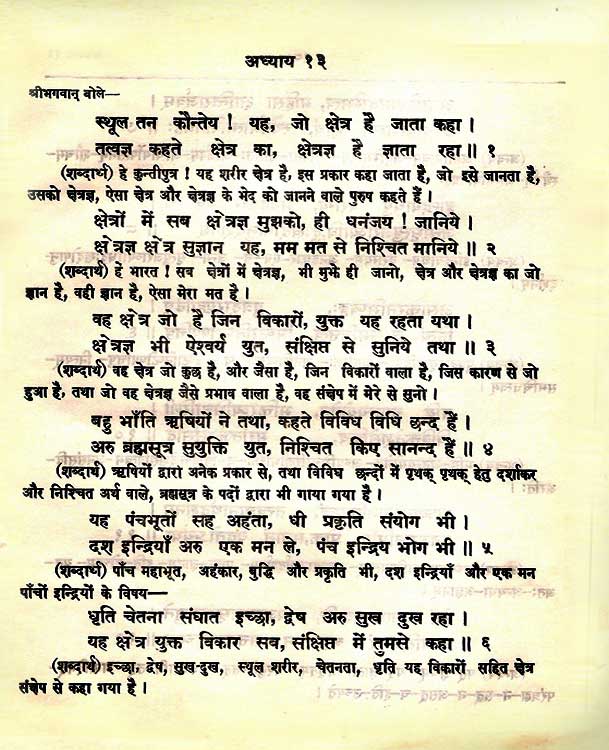 अध्याय १३
श्रीभगवान् बोले—
स्थूल तन कौन्तेय ! यह, जो क्षेत्र है जाता कहा ।
तत्वज्ञ कहते क्षेत्र का, क्षेत्रज्ञ है ज्ञाता रहा ॥ १
(शब्दार्थ) हे कुन्तीपुत्र ! यह शरीर क्षेत्र है, इस प्रकार कहा जाता है, जो इसे जानता है,
उसको क्षेत्रज्ञ, ऐसा क्षेत्र और क्षेत्रज्ञ के भेद को जानने वाले पुरुष कहते हैं ।
क्षेत्रों में सब क्षेत्रज्ञ मुझको, ही धनंजय ! जानिये ।
क्षेत्रज्ञ क्षेत्र सुज्ञान यह, मम मत से निश्चित मानिये ॥ २
(शब्दार्थ) हे भारत ! सब क्षेत्रों में क्षेत्रज्ञ, भी मुझे ही जानो, क्षेत्र और क्षेत्रज्ञ का जो
ज्ञान है, वही ज्ञान है, ऐसा मेरा मत है ।
वह क्षेत्र जो है जिन विकारों, युक्त यह रहता यथा ।
क्षेत्रज्ञ भी ऐश्वर्य युत, संक्षिप्त से सुनिये तथा ॥ ३
(शब्दार्थ) वह क्षेत्र जो कुछ है, और जैसा है, जिन विकारों वाला है, जिस कारण से जो
हुआ है, तथा जो वह क्षेत्रज्ञ जैसे प्रभाव वाला है, वह संक्षेप में मेरे से सुनो ।
बहु भाँति ऋषियों ने तथा, कहते विविध विधि छन्द हैं ।
अरु ब्रह्मसूत्र सुयुक्ति युत, निश्चित किए सानन्द हैं ॥ ४
(शब्दार्थ) ऋषियों द्वारा अनेक प्रकार से, तथा विविध छन्दों में पृथक् पृथक् हेतु दर्शाकर
और निश्चित अर्थ वाले, ब्रह्मसूत्र के पदों द्वारा भी गाया गया है ।
यह पंचभूतों सह अहंता, धी प्रकृति संयोग भी ।
दश इन्द्रियाँ अरु एक मन ले, पंच इन्द्रिय भोग भी ॥ ५
(शब्दार्थ) पाँच महाभूत, अहंकार, बुद्धि और प्रकृति भी, दश इन्द्रियाँ और एक मन
पाँचों इन्द्रियों के विषय—
धृति चेतना संघात इच्छा, द्वेष अरु सुख दुख रहा ।
यह क्षेत्र युक्त विकार सब, संक्षिप्त में तुमसे कहा ॥ ६
(शब्दार्थ) इच्छा, द्वेष, सुख-दुख, स्थूल शरीर, चेतनता, धृति यह विकारों सहित क्षेत्र
संक्षेप से कहा गया है ।